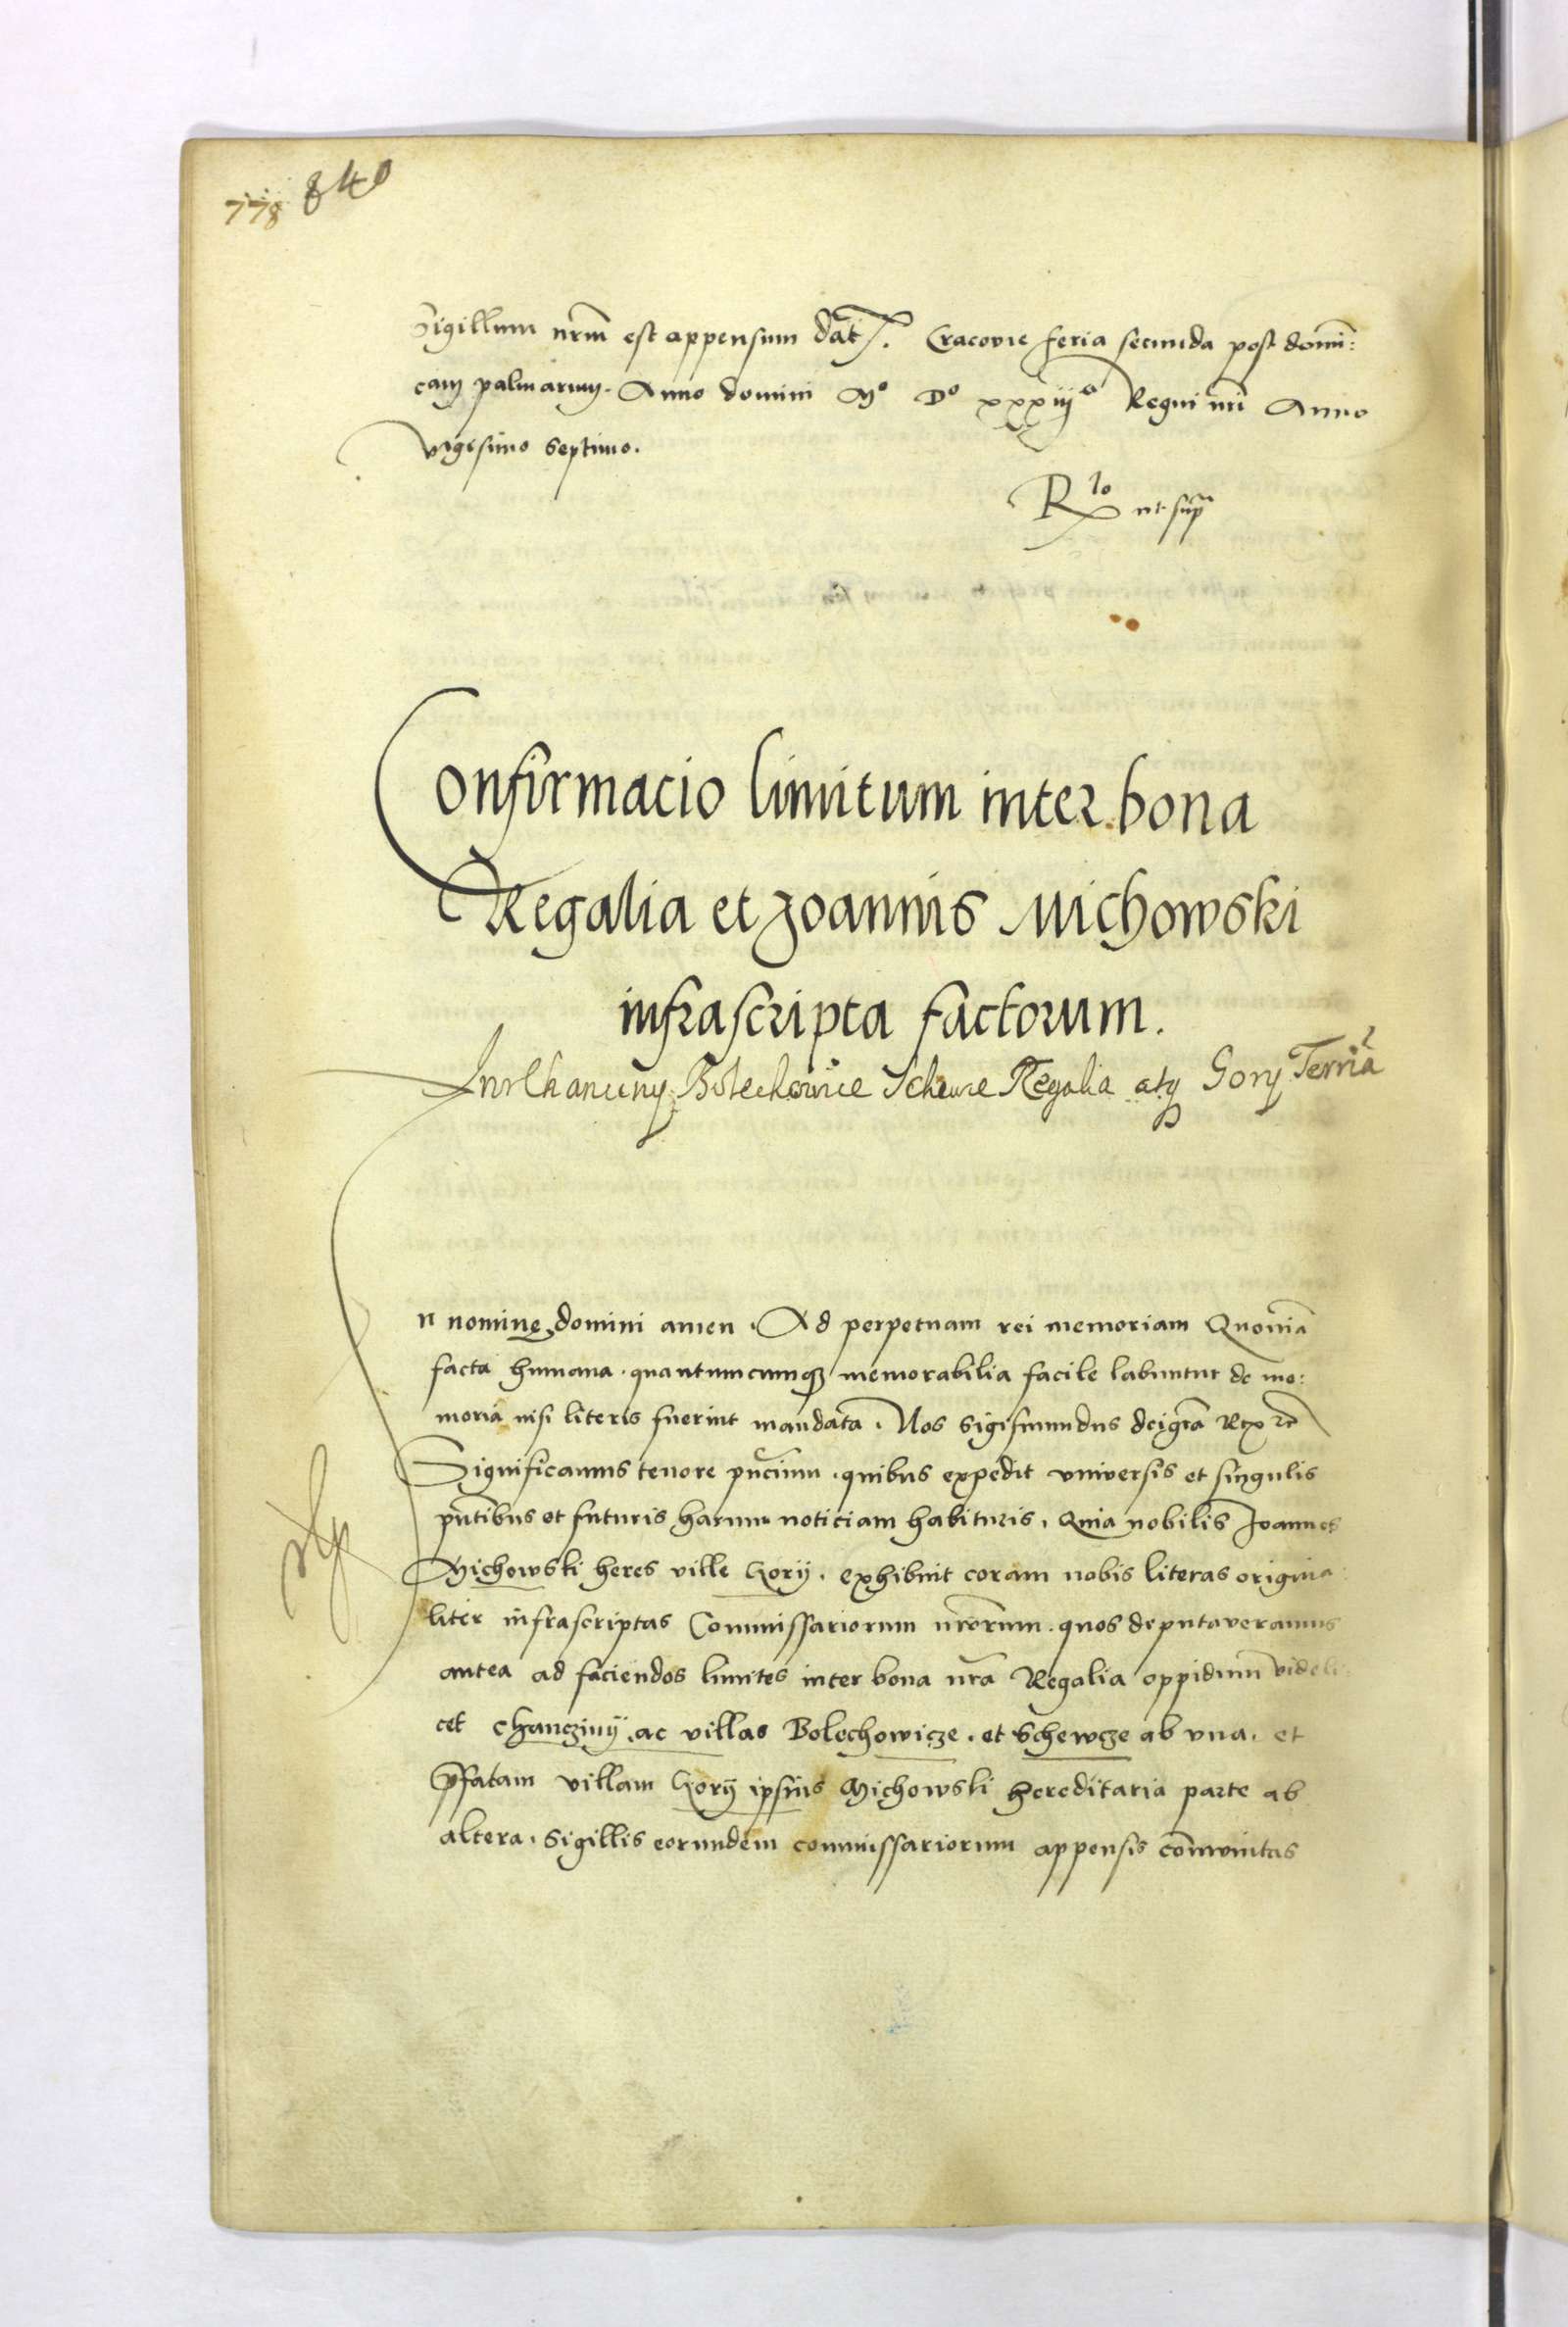 778 840
Sigillum nrm̃ est appensum Dat̃. Cracovie feria secunda post domi̅:
cam palmarum. Anno domini Mº Dº xxxiijº Regni nri̅ Anno
vigesimo septimo.
R^lo ut supra
Confirmacio limitum inter bona
Regalia et Joannis Michowski
infrascripta factorum.
Bolechowice Schewce Regalia atq Gory Terr̃a
In nomine domini amen. Ad perpetuam rei memoriam Quoniã
facta humana. quantumcumq3 memorabilia facile labuntur de me:
moria nisi literis fuerint mandata. Nos Sigismundus dei gr̃a Rex rc̃
Significamus tenore pñcium. quibus expedit universis et singulis
pñtibus et futuris harum noticiam habituris. Quia nobilis Joannes
Michowski heres ville Gorij. exhibuit coram nobis literas origina:
liter infrascriptas Commissariorum nrõrum. quos deputaveramus
antea ad faciendos limites inter bona nrã Regalia oppidum videli:
cet Chanczinij. ac villas Bolechowicze. et Schewcze ab una. et
p̃fatam villam Gorij ipsius Michowski hereditaria parte ab
altera. Sigillis eorundem commissariorum appensis com̃unitas